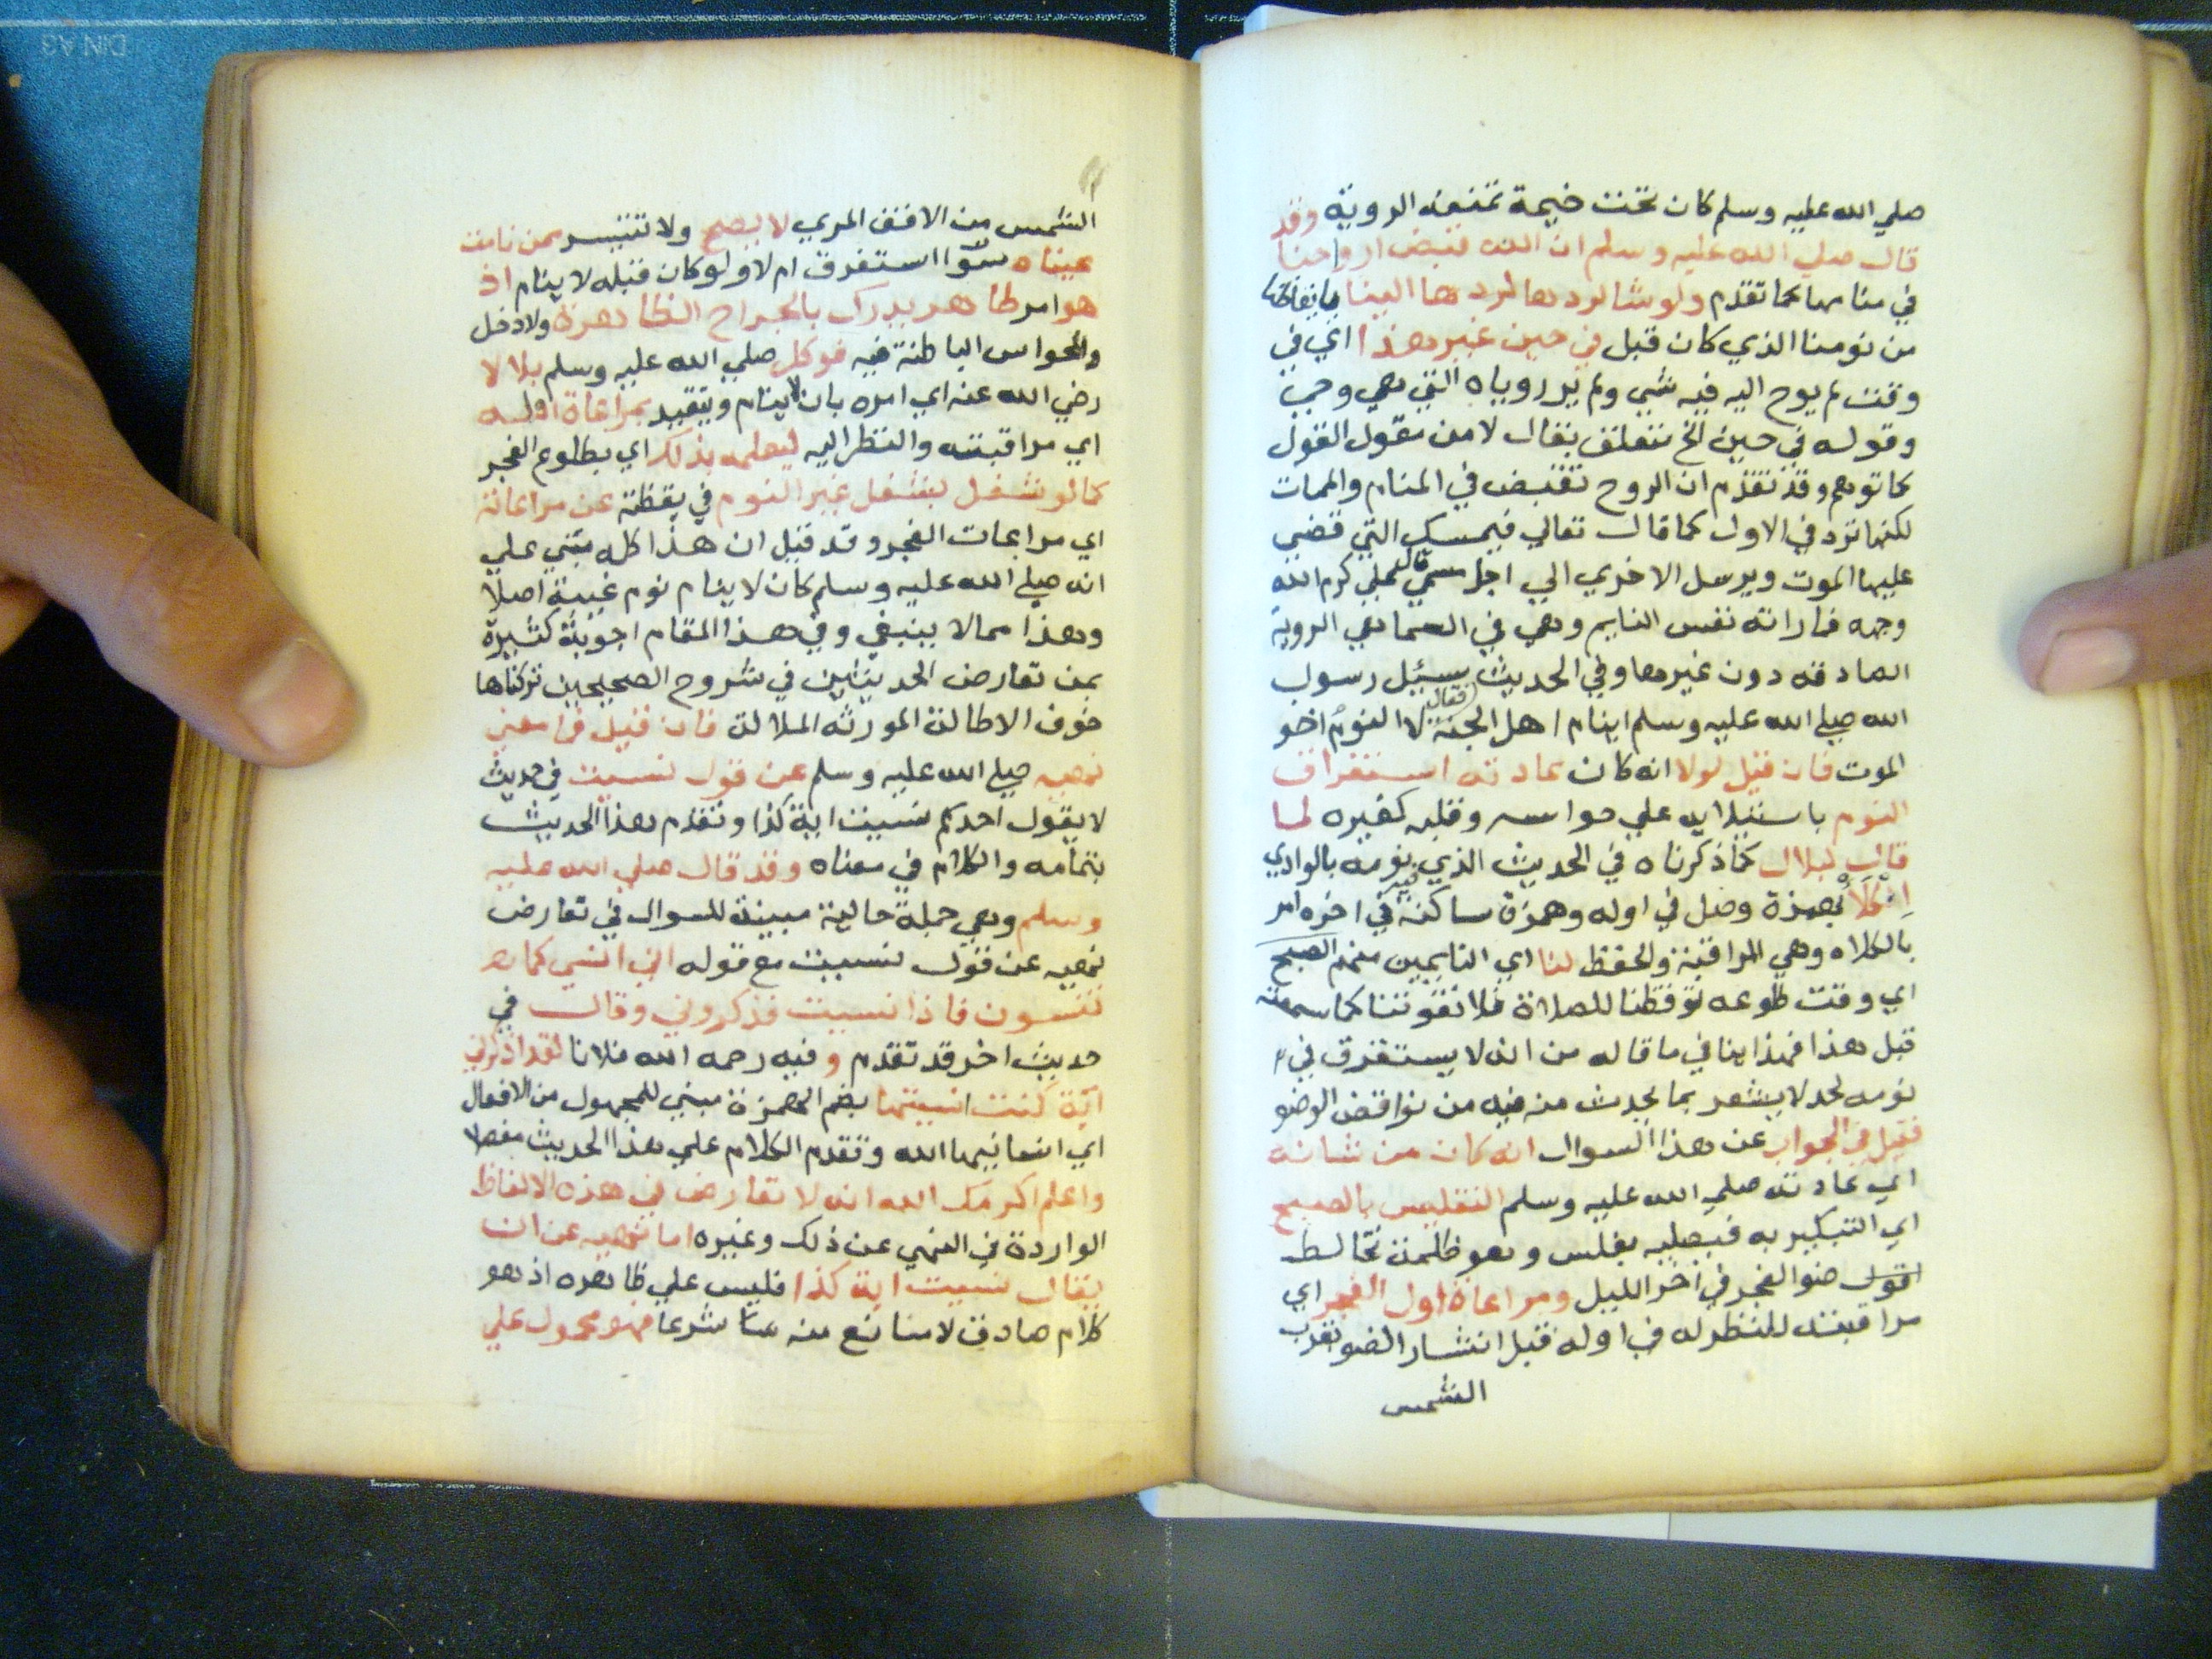 صلي الله عليه وسلم كان تحت خيمة تمنعه الروية وقد
قال صلي الله عليه وسلم ان الله قبض ارواحنا
في منامها كما تقدم ولو شا لردها لرد هما الينا بايقاظنا
من نومنا الذي كان قبل في حين غير هذا اي في
وقت لم يوح اليه فيه شي ولم ير روياه التي هي وحي
وقوله في حين الخ متعلق بقال لا من مقول القول
كما توهم وقد تقدم ان الروح تقبض في المنام والممات
لكنها ترد في الاول كما قال تعالي فيمسك التي قضي
عليها الموت ويرسل الاخري الي اجل مسمي قال علي كرم الله
وجهه فما راته نفس النايم وهي في السما هي الروية
الصادقة دون غيرها وفي الحديث سيئل رسول
الله صلي الله عليه وسلم اينام اهل الجنة فقال لا النوم اخو
الموت فان قيل لولا انه كان عادته استغراق
النوم باستيلايه علي حواسه وقلبه كغيره لما
قال لبلال كما ذكرناه في الحديث الذي فيه نومه بالوادي
اكلأ بهمزة وصل في اوله وهمزة ساكنة في اخره امر
بالكلاه وهي المراقبة والحفظ لنا اي النايمين منهم الصبح
اي وقت طلوعه توقظنا للصلاة فلا تفوتنا كما سمعته
قبل هذا فهذا ينافي ما قاله من انه لا يستغرق في
نومه لحد لا يشعر بما يحدث منه فيه من نواقض الوضو
فقيل في الجواب عن هذا السوال انه كان من شانه
اي عادته صلي الله عليه وسلم التغليس بالصبح
اي التبكير به فيصليه بغلس وهو ظلمة تخالط
اقول ضو الفجر في اخر الليل ومراعاة اول الفجر اي
مراقبته للنظر له في اوله قبل انتشار الضو بقرب
الشمس
الشمس من الافق المري لا يصح ولا تتيسر ممن نامت
عيناه سوا استغرق ام لا ولو كان قبله لا ينام اذ
هو امر ظاهر يدرك بالجوارح الظاهرة ولا دخل
والحواس الباطنة فيه فوكل صلي الله عليه وسلم بلالا
رضي الله عنه اي امره بان لا ينام ويتقيد بمراعاة اوله
اي مراقبته والنظر اليه ليعلمه بذلك اي بطلوع الفجر
كما لو شغل بشغل غير النوم في يقظته عن مراعاته
اي مراعات الفجر وقد قيل ان هذا كله مبني علي
انه صلي الله عليه وسلم كان لا ينام نوم غيبة اصلا
وهذا مما لا ينبغي وفي هذا المقام اجوبة كثيرة
بمن تعارض الحديثين في شروح الصحيحين تركناها
خوف الاطالة المورثه الملالة فان قيل فما معني
نهيه صلي الله عليه وسلم عن قول نسيت في حديث
لا يقول احدكم نسيت اية كذا وتقدم هذا الحديث
بتمامه والكلام في معناه وقد قال صلي الله عليه
وسلم وهي جملة حالية مبينة للسوال في تعارض
نهيه عن قول نسيت مع قوله اني انسي كما
تنسون فاذا نسيت فذكروني وقال في
حديث اخر قد تقدم وفيه رحمه الله فلانا لقد اذكرني
اية كنت انسيتها بضم الهمزة مبني للمجهول من الافعال
اي انسانيها الله وتقدم الكلام علي هذا الحديث مفصلا
واعلم اكرمك الله انه لا تعارض في هذه الالفاظ
الواردة في النهي عن ذلك وغيره اما نهيه عن ان
يقال نسيت اية كذا فليس علي ظاهره اذ هو
كلام صادق لا مانع منه شرعا فهو محمول علي